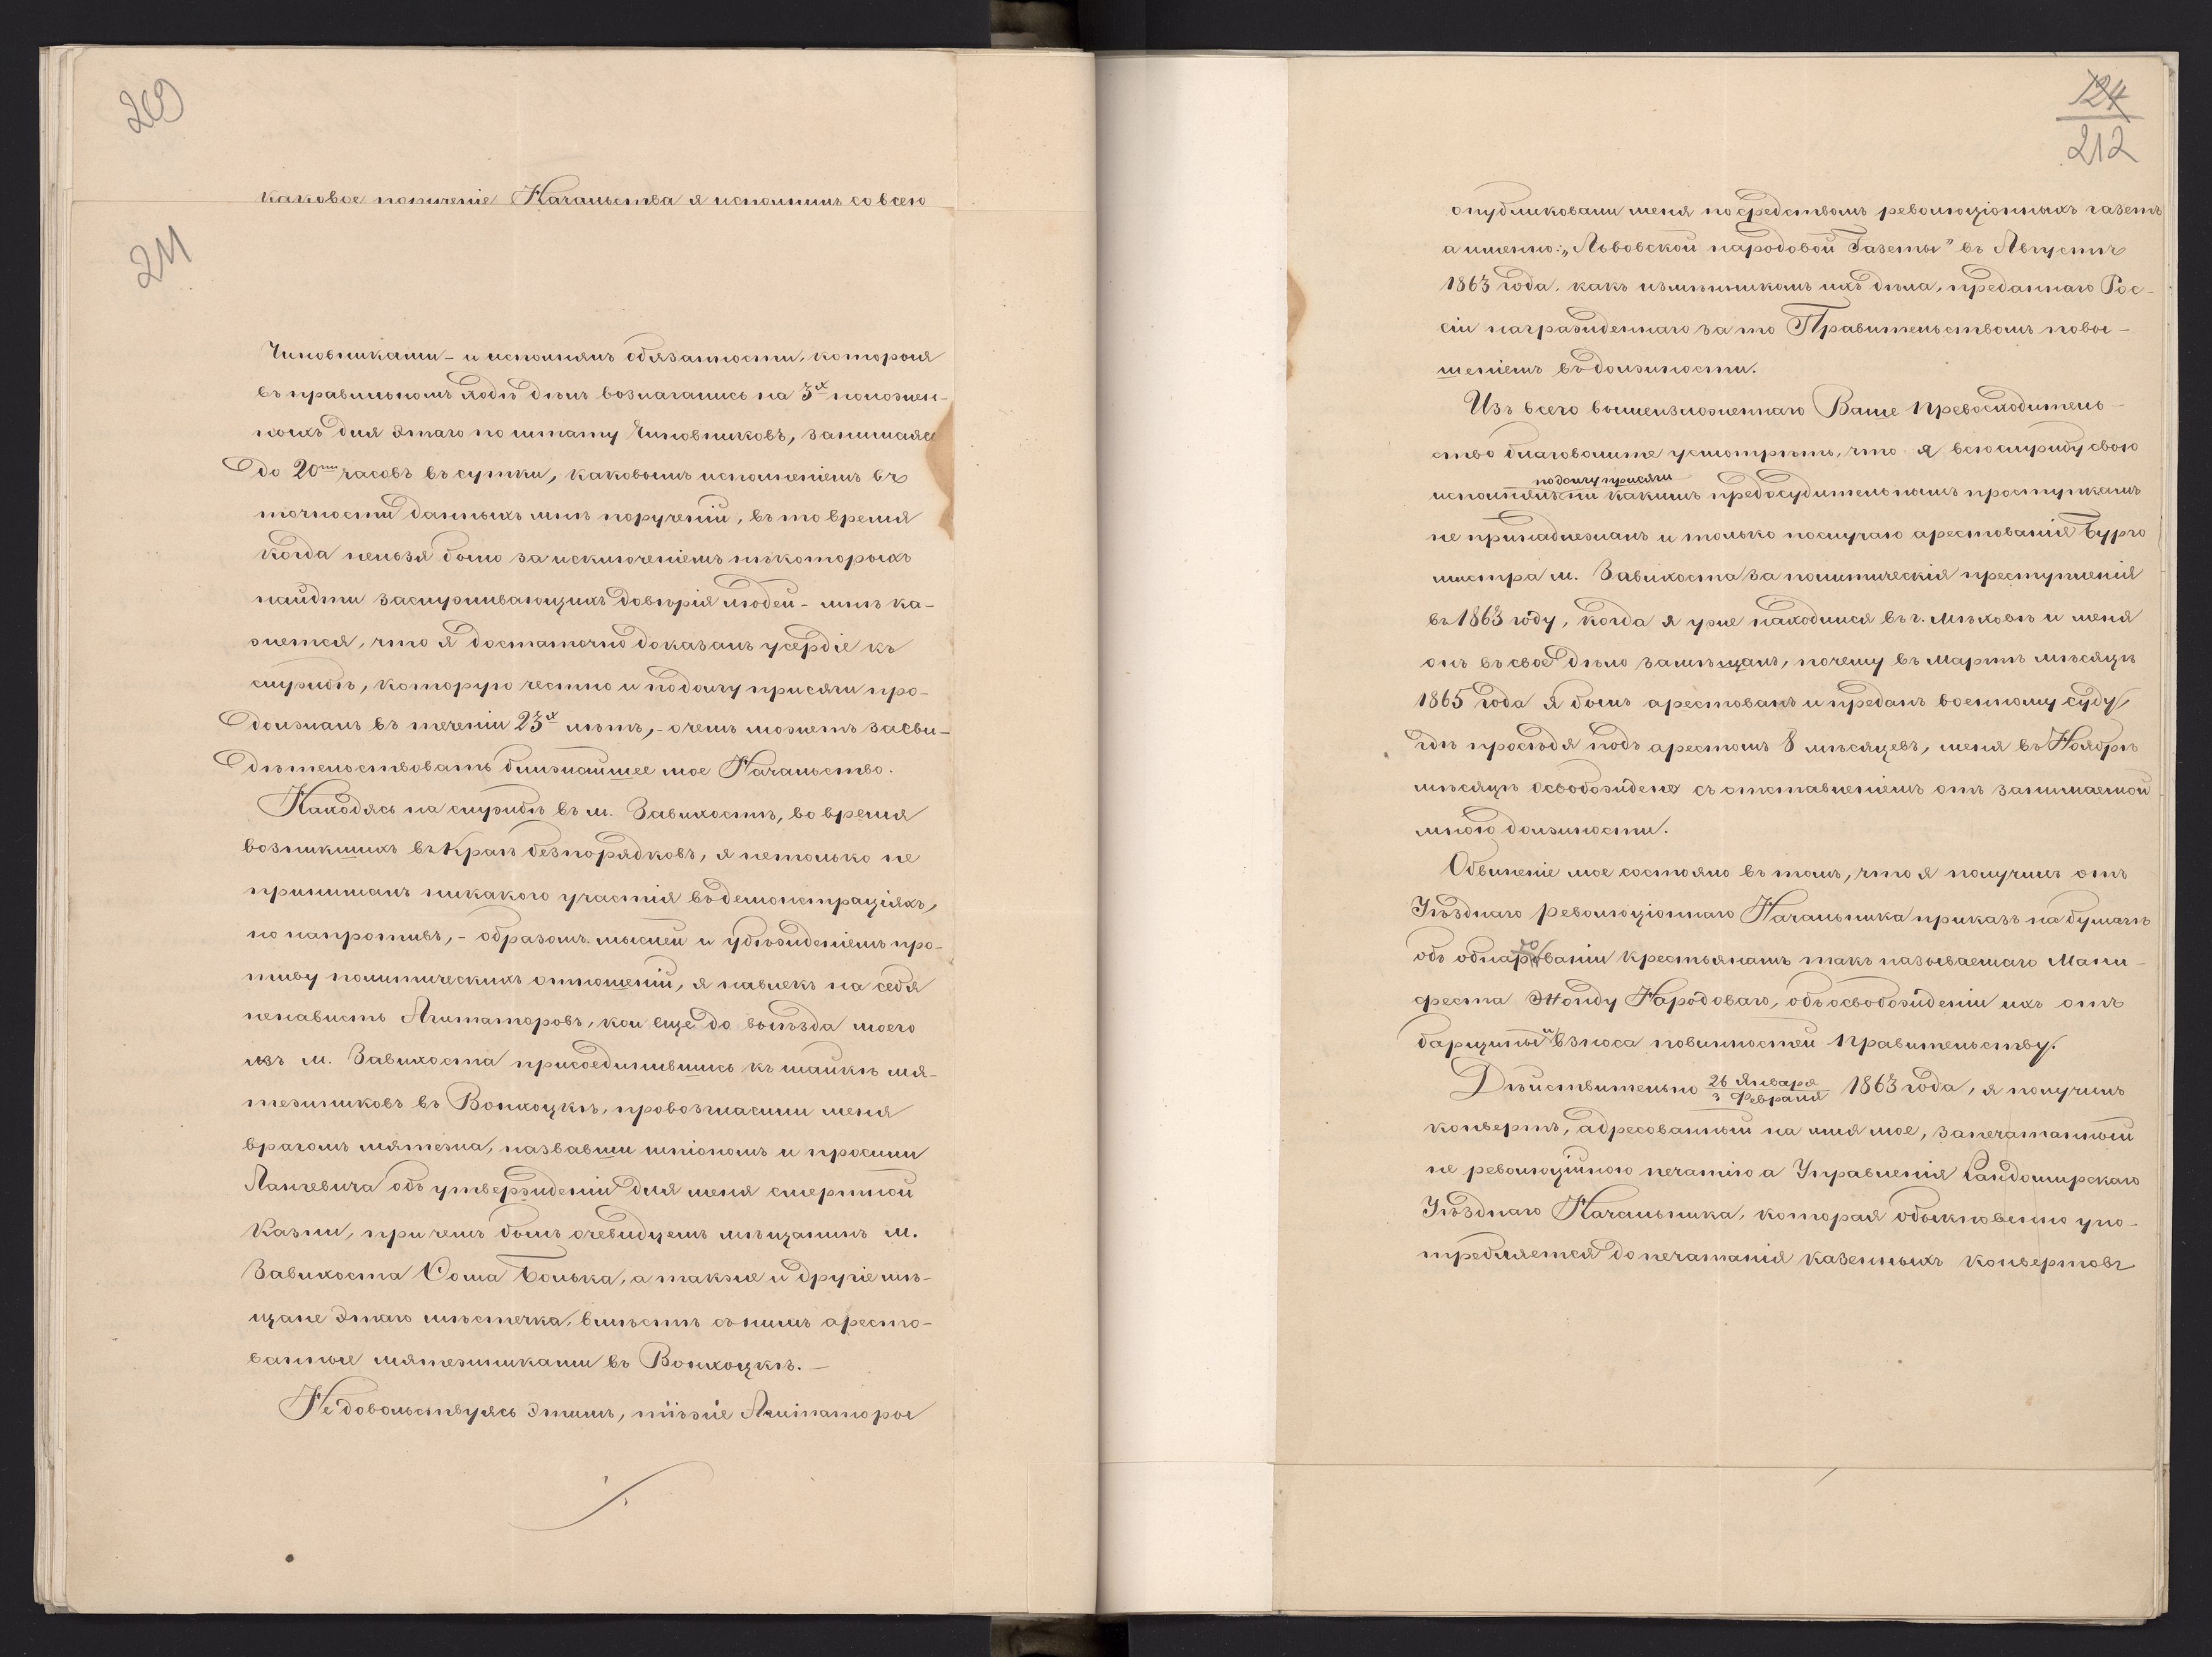 209
каковое порученіе Начальства я исполнилъ со всею
211
Чиновниками – и исполнялъ обязанности, которыя
въ правильномъ ходѣ дѣлъ возлагались на 3х положен-
ныхъ для этаго по штату Чиновниковъ, занимаясь
до 20ти часовъ въ сутки, каковымъ исполненіемъ въ
точности данныхъ мнѣ порученій, въ то время
когда нельзя было за исключеніемъ нѣкоторыхъ
найдти заслуживающихъ довѣрія людей – мнѣ ка-
жется, что я достаточно доказалъ усердіе къ
службѣ, которую честно и по долгу присяги про-
должалъ въ теченіи 23х лѣтъ, – о чемъ можетъ засви-
дѣтельствовать ближайшее мое Начальство.
Находясь на службѣ въ м. Завихостѣ, во время
возникшихъ въ Краѣ безпорядковъ, я нетолько не
принималъ никакого участія въ демонстраціяхъ,
но напротивъ, – образомъ мыслей и убѣжденіемъ про-
тиву политическихъ отношеній, я навлекъ на себя
ненависть Агитаторовъ, кои еще до выѣзда моего
изъ м. Завихоста присоединившись къ шайкѣ мя-
тежниковъ въ Вонхоцкѣ, провозгласили меня
врагомъ мятежа, назвавши шпіономъ и просили
Лангевича объ утвержденіи для меня смертной
казни, при чемъ былъ очевидцемъ мѣщанинъ м.
Завихоста Сома Болька, а также и другіе мѣ-
щане этаго мѣстечка, вмѣстѣ съ нимъ аресто-
ванные мятежниками въ Вонхоцкѣ. –
Не довольствуясь этимъ, тѣже Агитаторы
124
212
опубликовали меня посредствомъ революціонныхъ газетъ
а именно: „Львовской народовой Газеты" въ Августѣ
1863 года, какъ измѣнникомъ ихъ дѣла, преданнаго Рос-
сіи награжденнаго за то Правительствомъ повы-
шеніемъ въ должности.
Изъ всего вышеизложеннаго Ваше Превосходитель-
ство благоволите усмотрѣть, что я всю службу свою
по долгу присяги
исполнялъ ни какимъ предосудительнымъ проступкамъ
не принадлежалъ и только по случаю арестованія Бурго
мистра м. Завихоста за политическія преступленія
въ 1863 году, когда я уже находился въ г. Мѣховѣ и меня
онъ въ свое дѣло замѣщалъ, почему въ Мартѣ мѣсяцѣ
1865 года я былъ арестованъ и преданъ военному суду,
гдѣ просѣдя подъ арестомъ 8 мѣсяцевъ, меня въ Ноябрѣ
мѣсяцѣ освобождено съ отставленіемъ отъ занимаемой
мною должности.
Обвиненіе мое состояло въ томъ, что я получилъ отъ
Уѣзднаго революціоннаго Начальника приказъ на бумагѣ
объ обнародованіи крестьянамъ такъ называемаго Мани-
феста Жонду Народоваго, объ освобожденіи ихъ отъ
барщины и взноса повинностей Правительству.
Дѣйствительно 26 Января / 3 Февраля 1863 года, я получилъ
конвертъ, адресованный на имя мое, запечатанный
не революційною печатію а Управленія Сандомирскаго
Уѣзднаго Начальника, которая обыкновенно упо-
требляется до печатанія казенныхъ конвертовъ